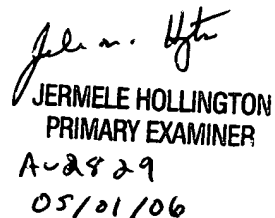 JERMELE HOLLINGTON
PRIMARY EXAMINER
AU 2829
05/01/06